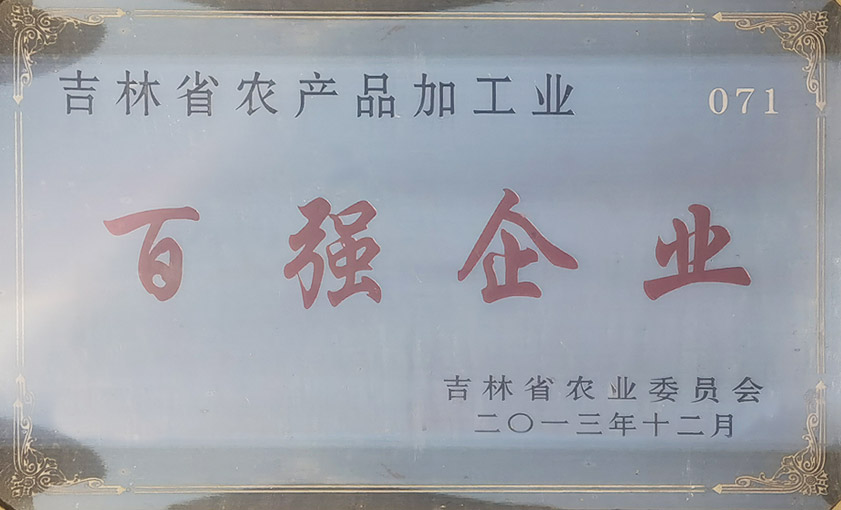 吉林省农产品加工业 071
百强企业
吉林省农业委员会
二〇一三年十二月